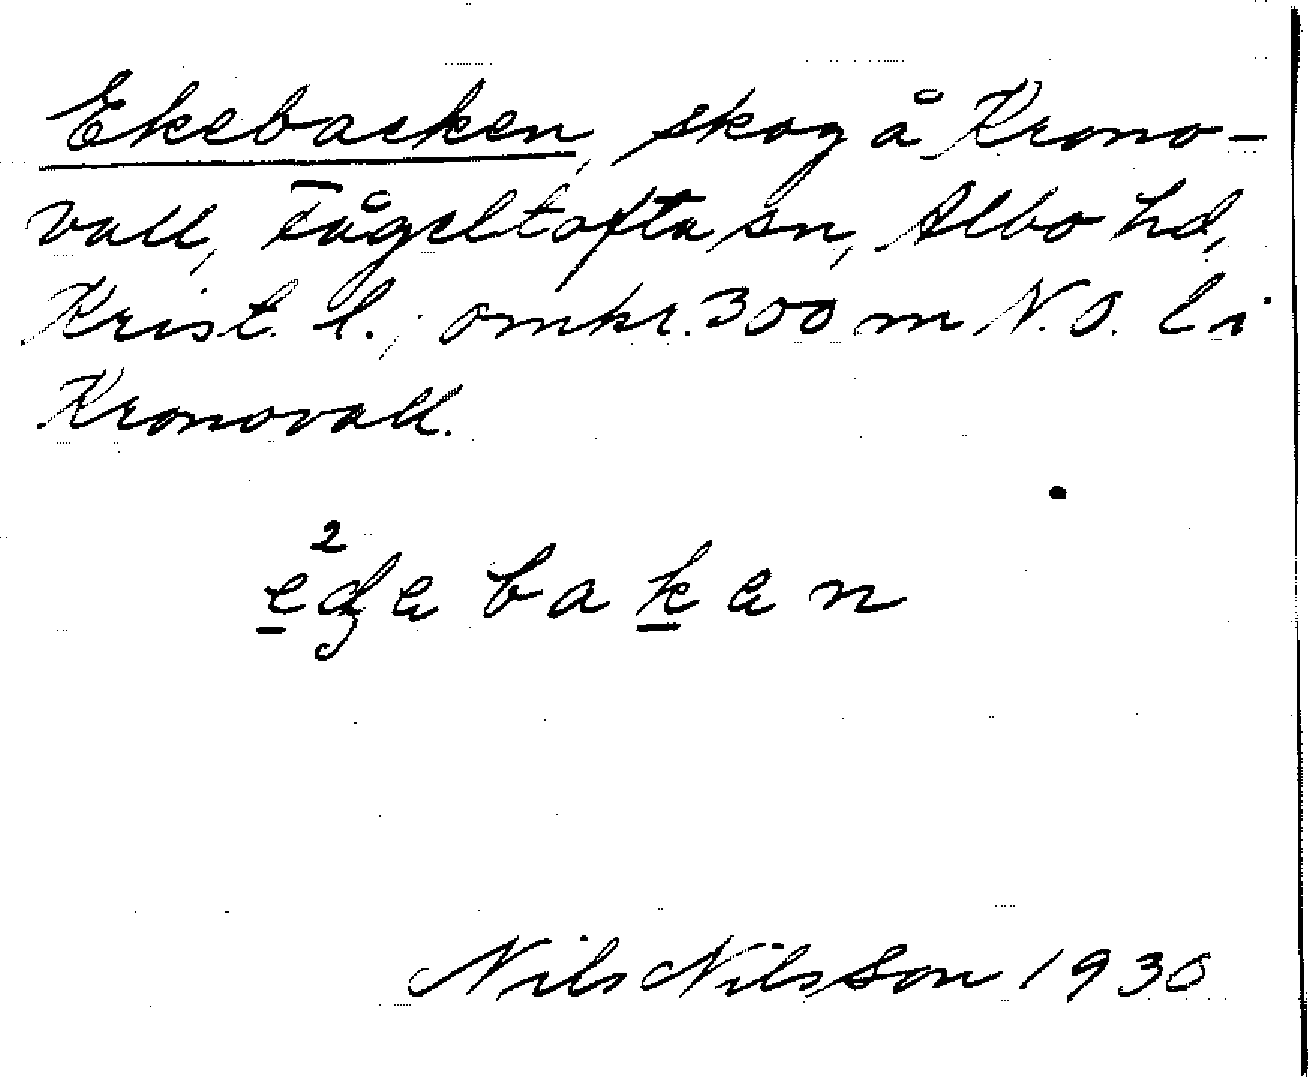 Ekebacken, skog å Krono-
vall, Fågeltofta sn, Albo hd,
Krist. l.; omkr. 300 m N.O. om
Kronovall.
2
egebaken
Nils Nilsson 1930